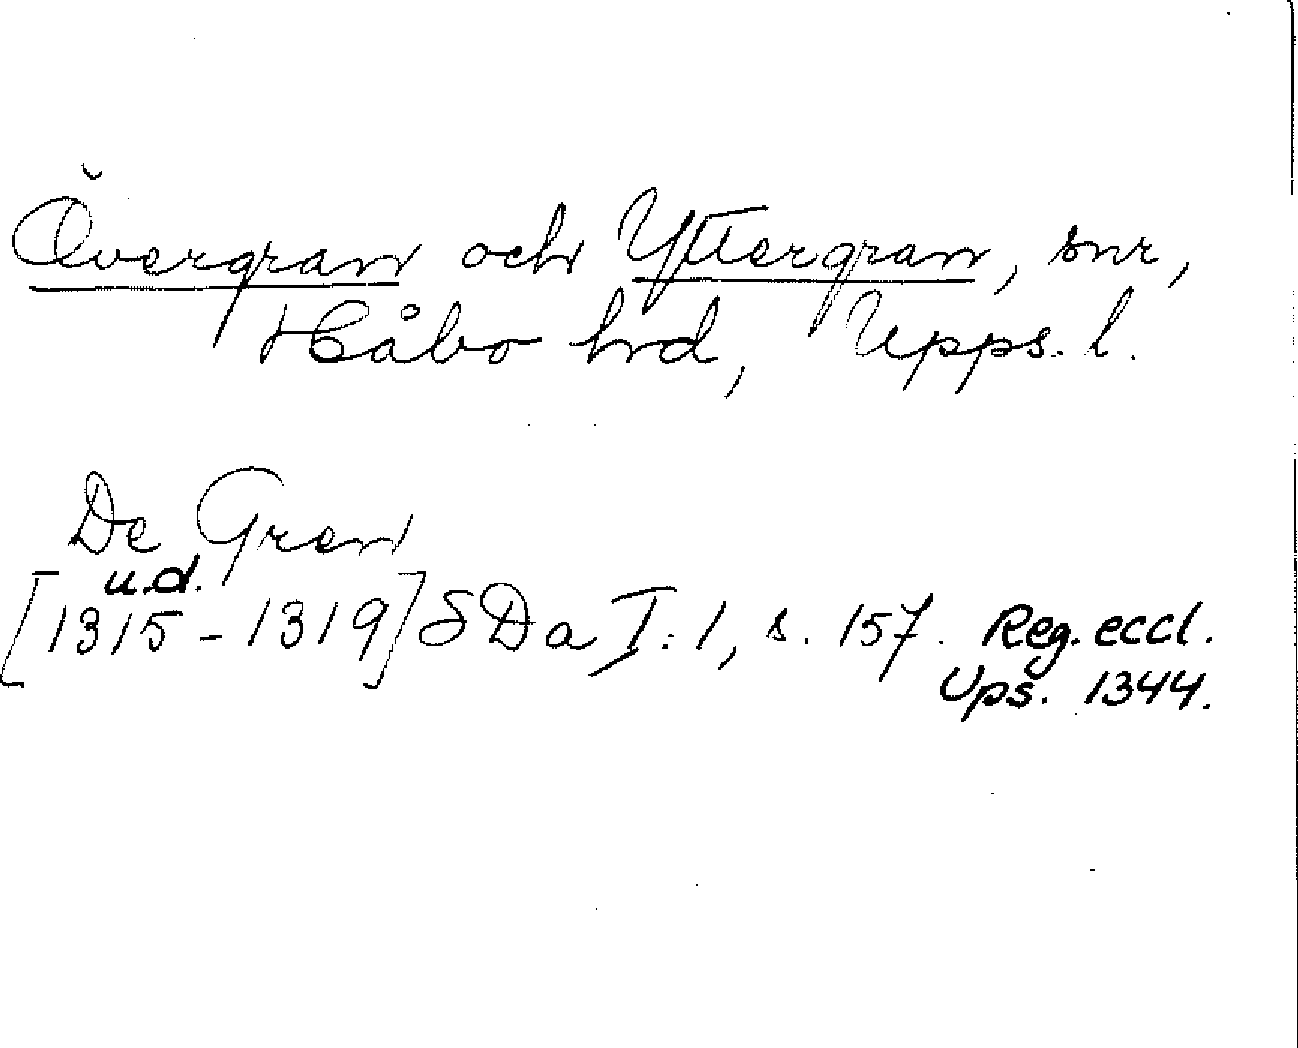 Övergran och Yttergran, snr,
Håbo hrd, Upps. l.
De Gran
u.d.
[1315-1319] SDa I:1, s. 157. Reg. eccl.
Ups. 1344.